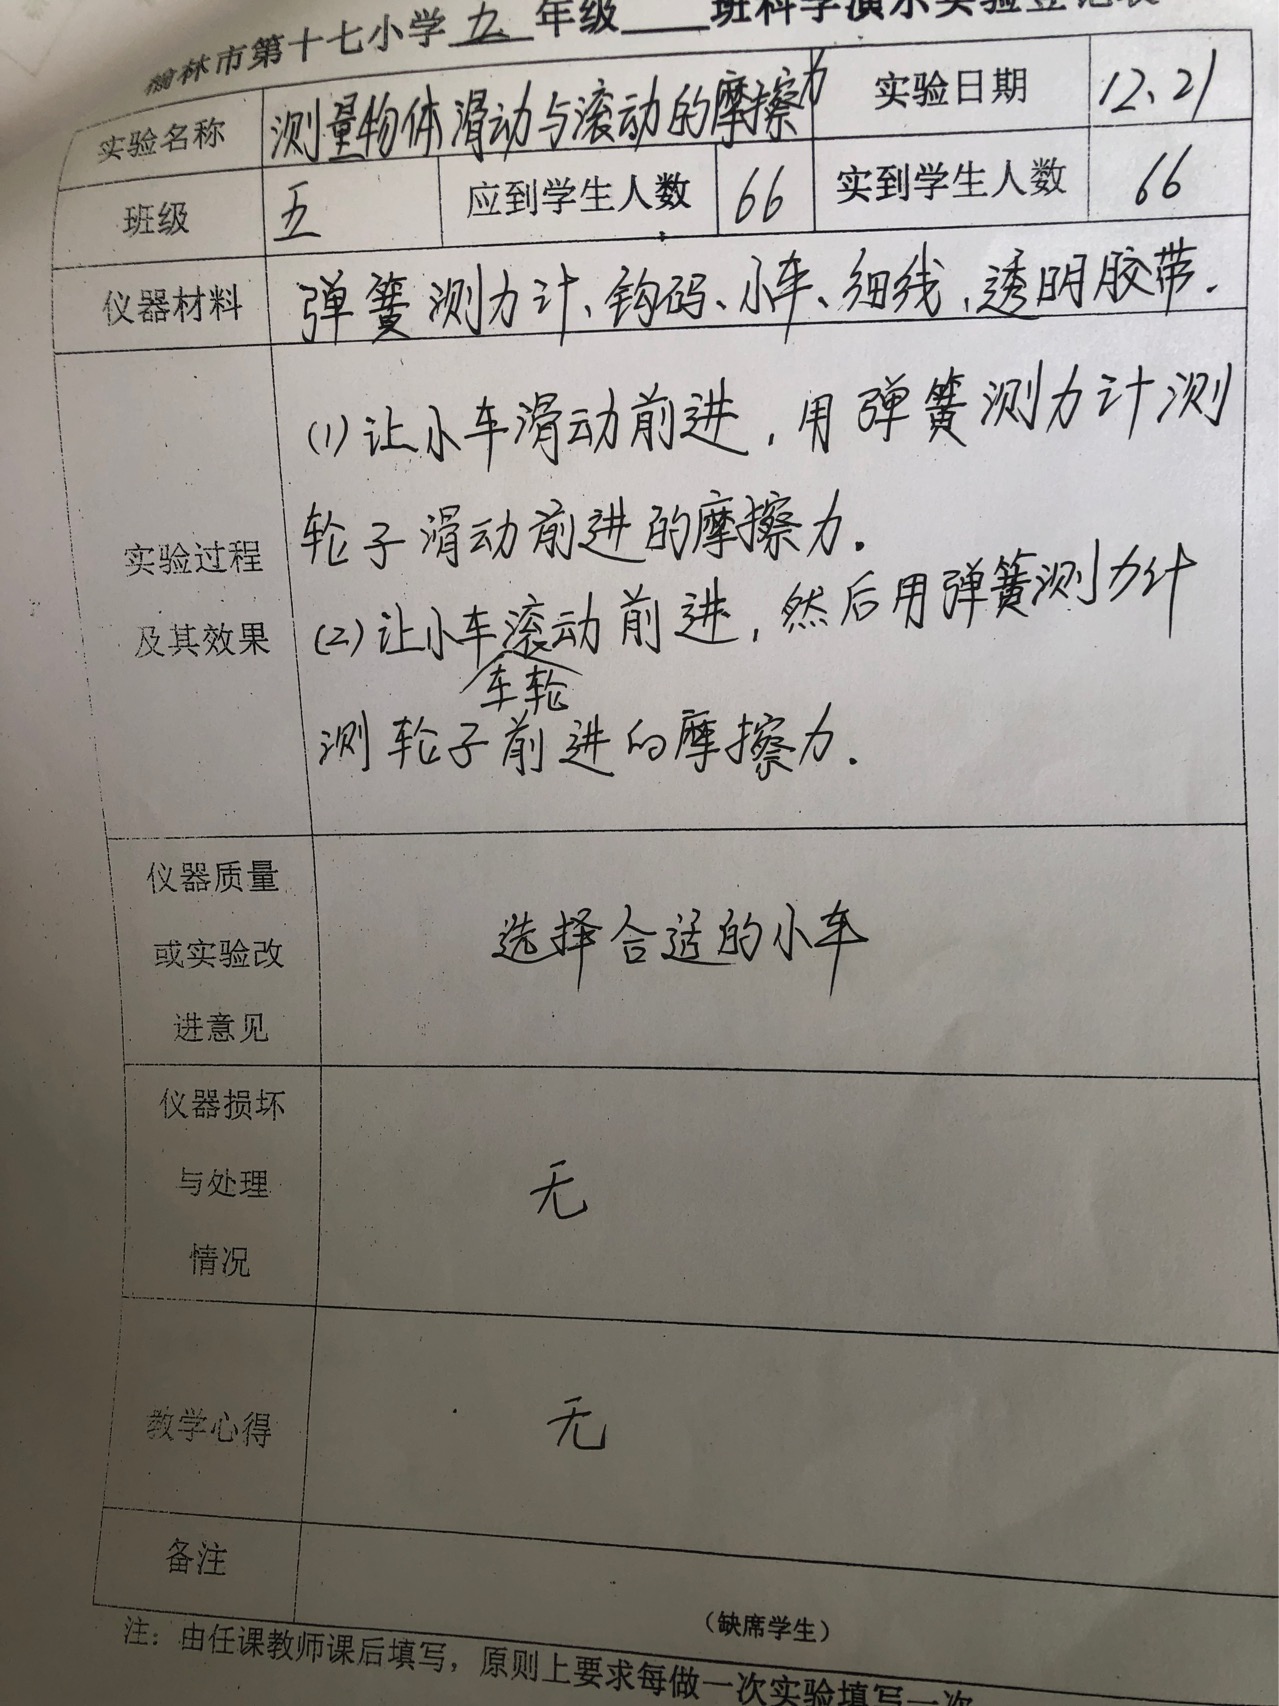 榆林市第十七小学 五 年级 班科学演示实验登记表
实验名称 测量物体滑动与滚动的摩擦力 实验日期 12、21
班级 五 应到学生人数 66 实到学生人数 66
仪器材料 弹簧测力计、钩码、小车、细线、透明胶带.
(1)让小车滑动前进，用弹簧测力计测
轮子滑动前进的摩擦力.
实验过程
及其效果
(2)让小车滚动前进，然后用弹簧测力计
车轮
测轮子前进的摩擦力.
仪器质量
或实验改
进意见
选择合适的小车
仪器损坏
与处理
情况
无
教学心得 无
备注
（缺席学生）
注：由任课教师课后填写，原则上要求每做一次实验填写一次